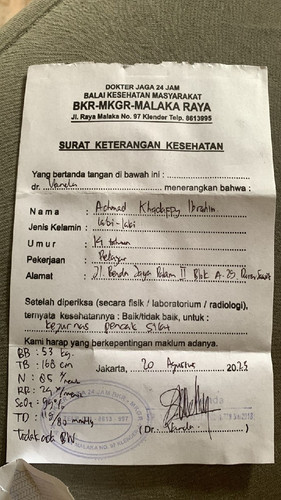 DOKTER JAGA 24 JAM
BALAI KESEHATAN MASYARAKAT
BKR-MKGR-MALAKA RAYA
Jl. Raya Malaka No. 97 Klender Telp. 8613995
SURAT KETERANGAN KESEHATAN
Yang bertanda tangan di bawah ini :
dr. Vanda menerangkan bahwa :
Nama : Achmad Ibrahim
Jenis Kelamin : laki-laki
Umur : 14 tahun
Pekerjaan : Pelajar
Alamat : Jl. Jaya II Blok A.25
Setelah diperiksa (secara fisik / laboratorium / radiologi),
ternyata kesehatannya : Baik/tidak baik, untuk :
kejurnas pencak silat
Kami harap yang berkepentingan maklum adanya.
BB : 53 kg.
TB : 168 cm
Jakarta, 20 Agustus 2025
N : 85
RR : 20
SpO2 : 99%
TD : 80 mmHg
Tidak buta
(Dr. Vanda)